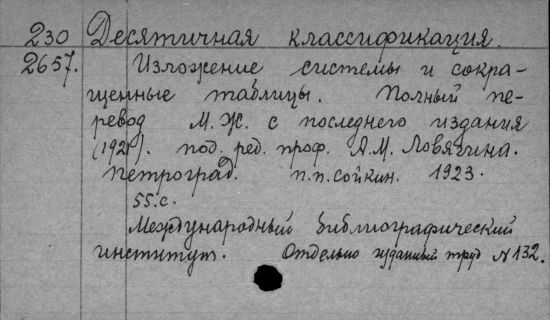 230 Десятичная классификация.
2657. Изложение системы и сокра-
щенные таблицы. Полный пе-
ревод М.Ж. с последнего издания
(1921). под. ред. проф. А.М. Ловягина.
Петроград. п.п.сойкин. 1923.
55.с.
Международный библиографический
институт. Отдельно изданный труд N 132.